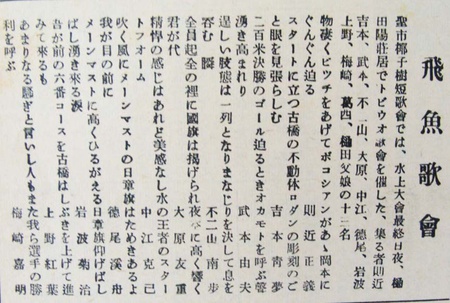 飛魚歌會
聖市椰子樹短歌會では、水上大會最終日夜、樋
田陽莊居でトビウオ歌會を催した、集る者則近
吉本、武本、不二山、大原、中江、德尾、岩波
上野、梅崎、葛西、樋田父娘の十三名
物凄くピツチをあげてポコシアンがあゝ岡本に
ぐんぐん迫る　則近正義
スタートに立つ古橋の不動体ロダンの彫刻のご
と眼を見張らしむ　吉本靑夢
二百米決勝のゴール迫るときオカモトを呼ぶ聲
湧き高まれり　武本由夫
逞しい肢態は一列となりまなじりを決して息を
吞む一瞬　不二山南步
全員起全の裡に國旗は揚げられ夜空に高く響く
君が代　大原友重
精悍の感じはあれど美感なし水の王者のスター
トフオーム　中江克己
吹く風にメーンマストの日章旗はためきあるよ
我が目の前に　德尾溪舟
メーンマストに高くひるがえる日章旗仰げばし
ばし湧き來る淚　岩波菊治
吾が前の六番コースを古橋はしぶきを上げて進
みて來るも　上野紅葉
あまりなる騷ぎと言いし人もまた我ら選手の勝
利を呼ぶ　梅崎嘉明